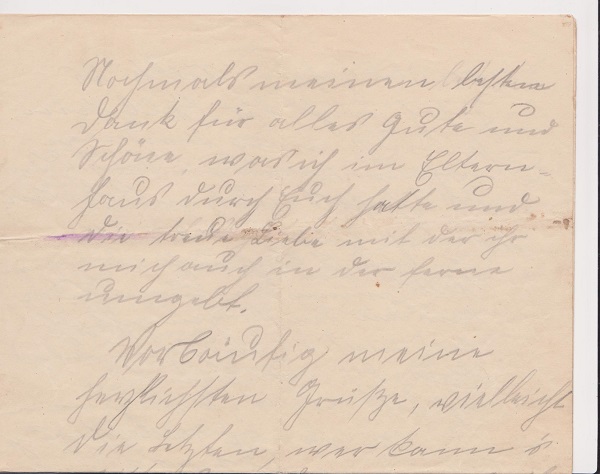 Nochmals meinen besten
Dank für alles Gute und
Schöne, was ich im Eltern-
haus durch Euch hatte und
die treue Liebe mit der ihr
mich auch in der ferne
umgebt.
Vorläufig meine
herzlichsten Grüße, vielleicht
die letzten, wer kann